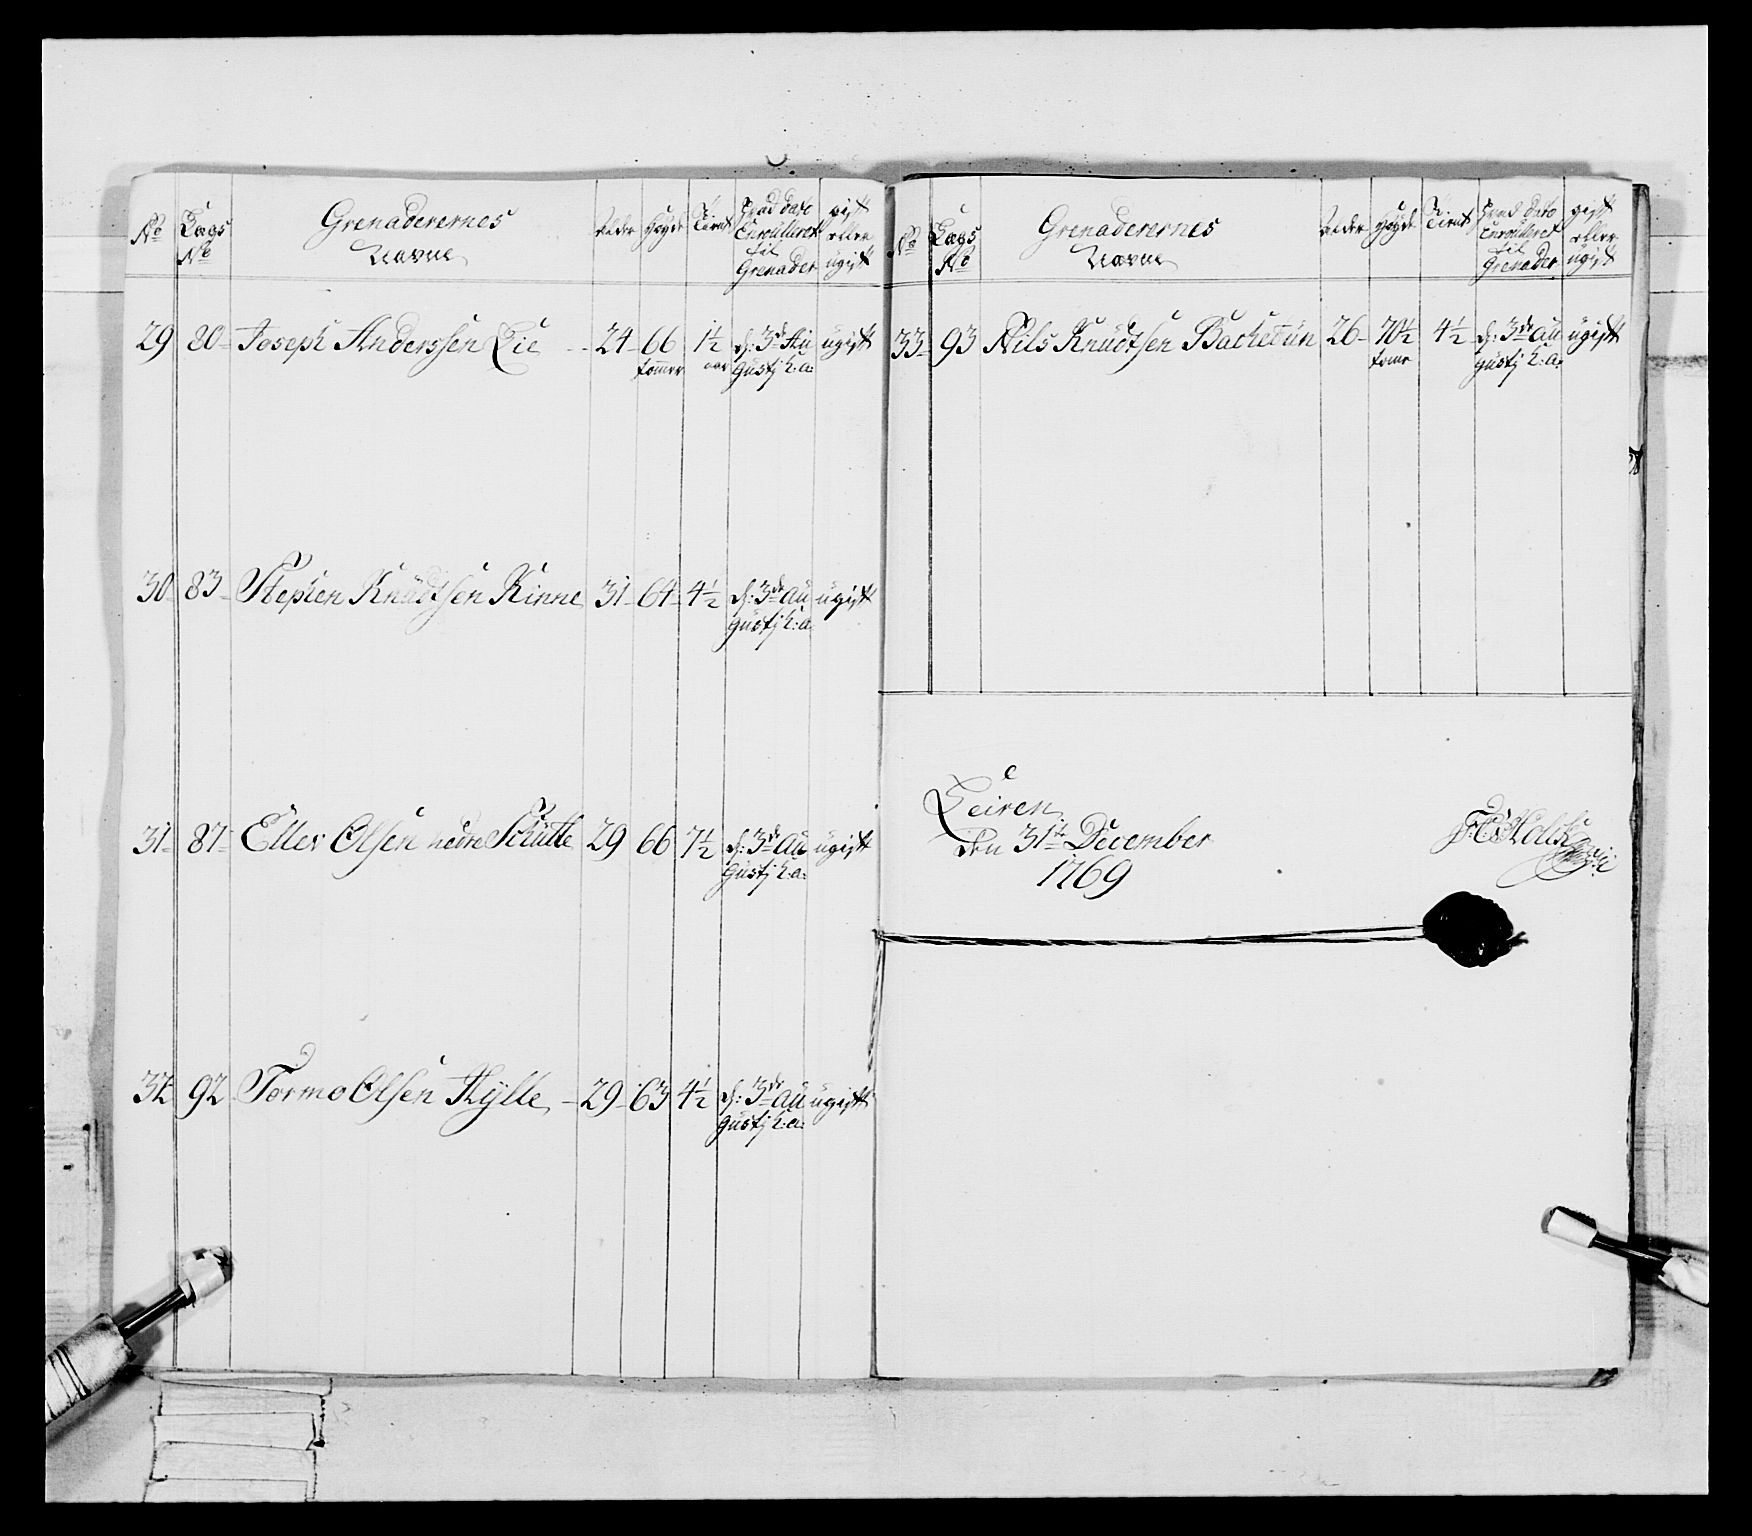 No
Lags No
Grenaderernes Navne
Alder
Høyde
Tient
hvad dato Enrouleret til Grenader
gift eller ugift
29 80 Joseph Anderssen Lie 24 66 tommer 1½ aar d: 3de Augustj h: a: ugift
30 83 Stephen Knudtsen Kinne 31 64 4½ d: 3de Augustj h: a: ugift
31 87 Ellev Olsen nedre Schütte 29 66 7½ d: 3de Augustj h: a: ugift
32 92 Tormo Olsen Hylle 29 63 4½ d: 3de Augustj h: a: ugift
No
Lags No
Grenaderernes Navne
Alder
Høyde
Tient
hvad dato Enrouleret til Grenader
gift eller ugift
33 93 Nils Knudtsen Bachetun 26 70½ tome 4½ d: 3de Augustj h: a: ugift
Leiren
den 31te December
1769